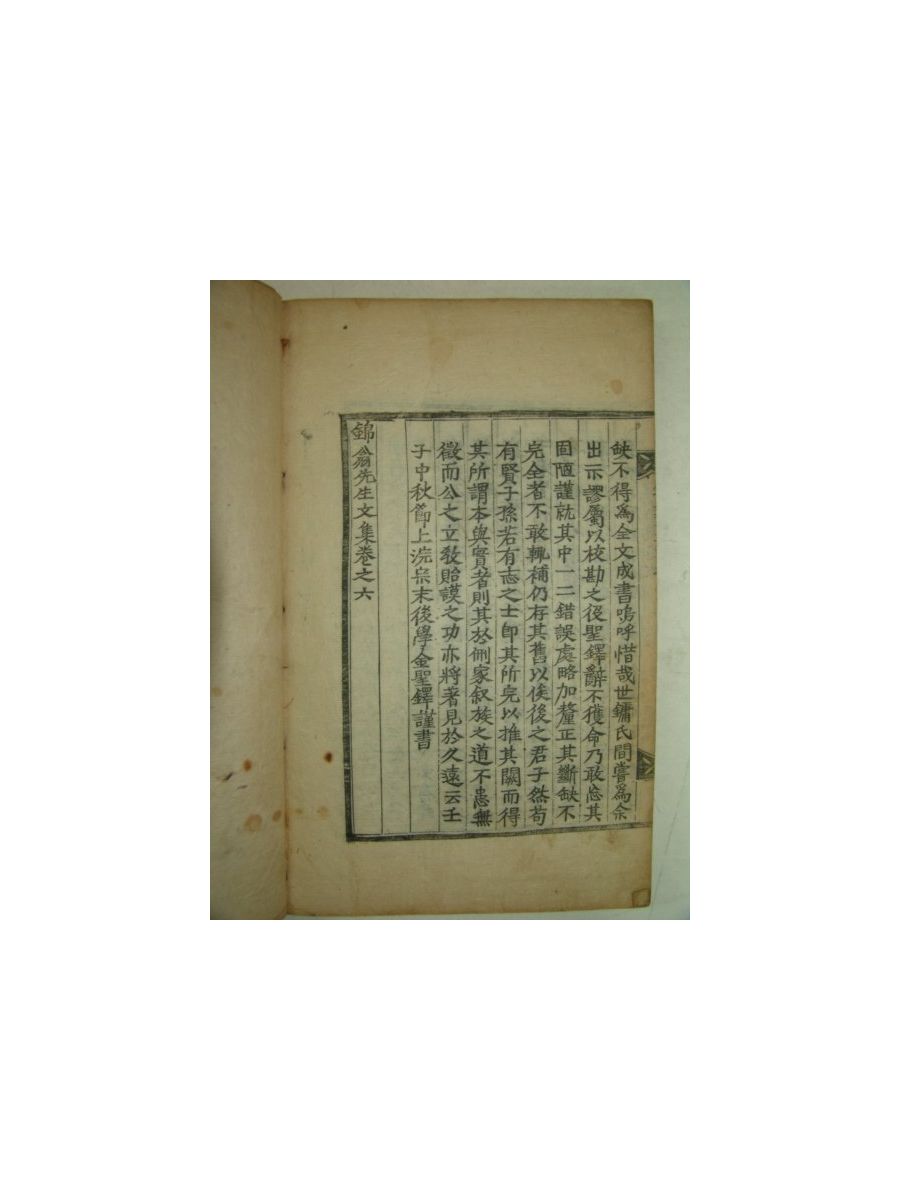 缺不得爲全文成書嗚呼惜哉世鏞氏間嘗爲余
出示謬屬以校勘之役聖鐸辭不獲命乃敢忘其
固陋謹就其中一二錯誤處略加釐正其斷缺不
完全者不敢輒補仍存其舊以俟後之君子然苟
有賢子孫若有志之士卽其所完以推其闕而得
其所謂本與實者則其於刑家叙族之道不患無
徵而公之立敎貽謨之功亦將著見於久遠云壬
子中秋節上浣宗末後學金聖鐸謹書
錦翁先生文集卷之六